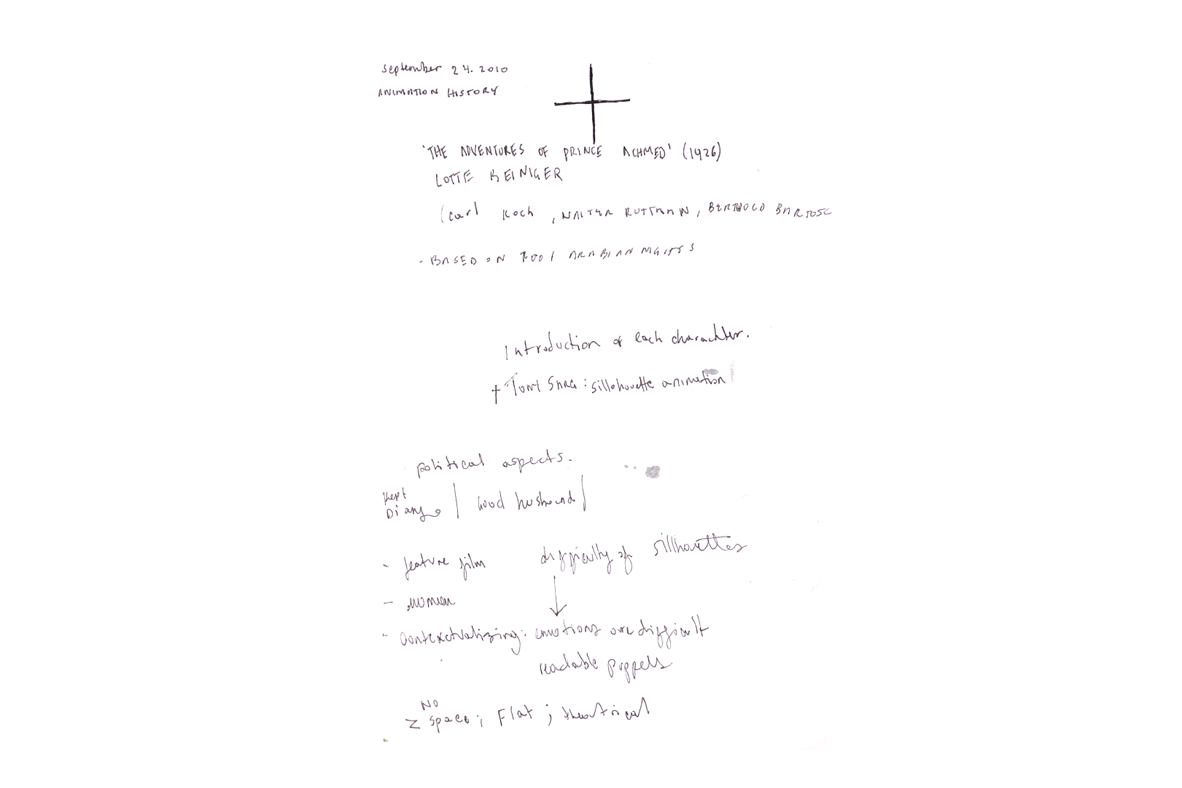 September 24. 2010
ANIMATION HISTORY
'THE ADVENTURES OF PRINCE ACHMED' (1926)
LOTTE REINIGER
(Carl Koch, WALTER RUTTMAN, BERTHOLD BARTOSC
- BASED ON 1001 ARABIAN NIGHTS
Introduction of each charachter.
+ TONY SARG: sillohouette animation
political aspects.
Kept
Diary | Good husband |
- feature film difficulty of sillhouettes
- women
- contextualizing: emotions are difficult
readable puppets
NO
Z space; Flat; theatrical